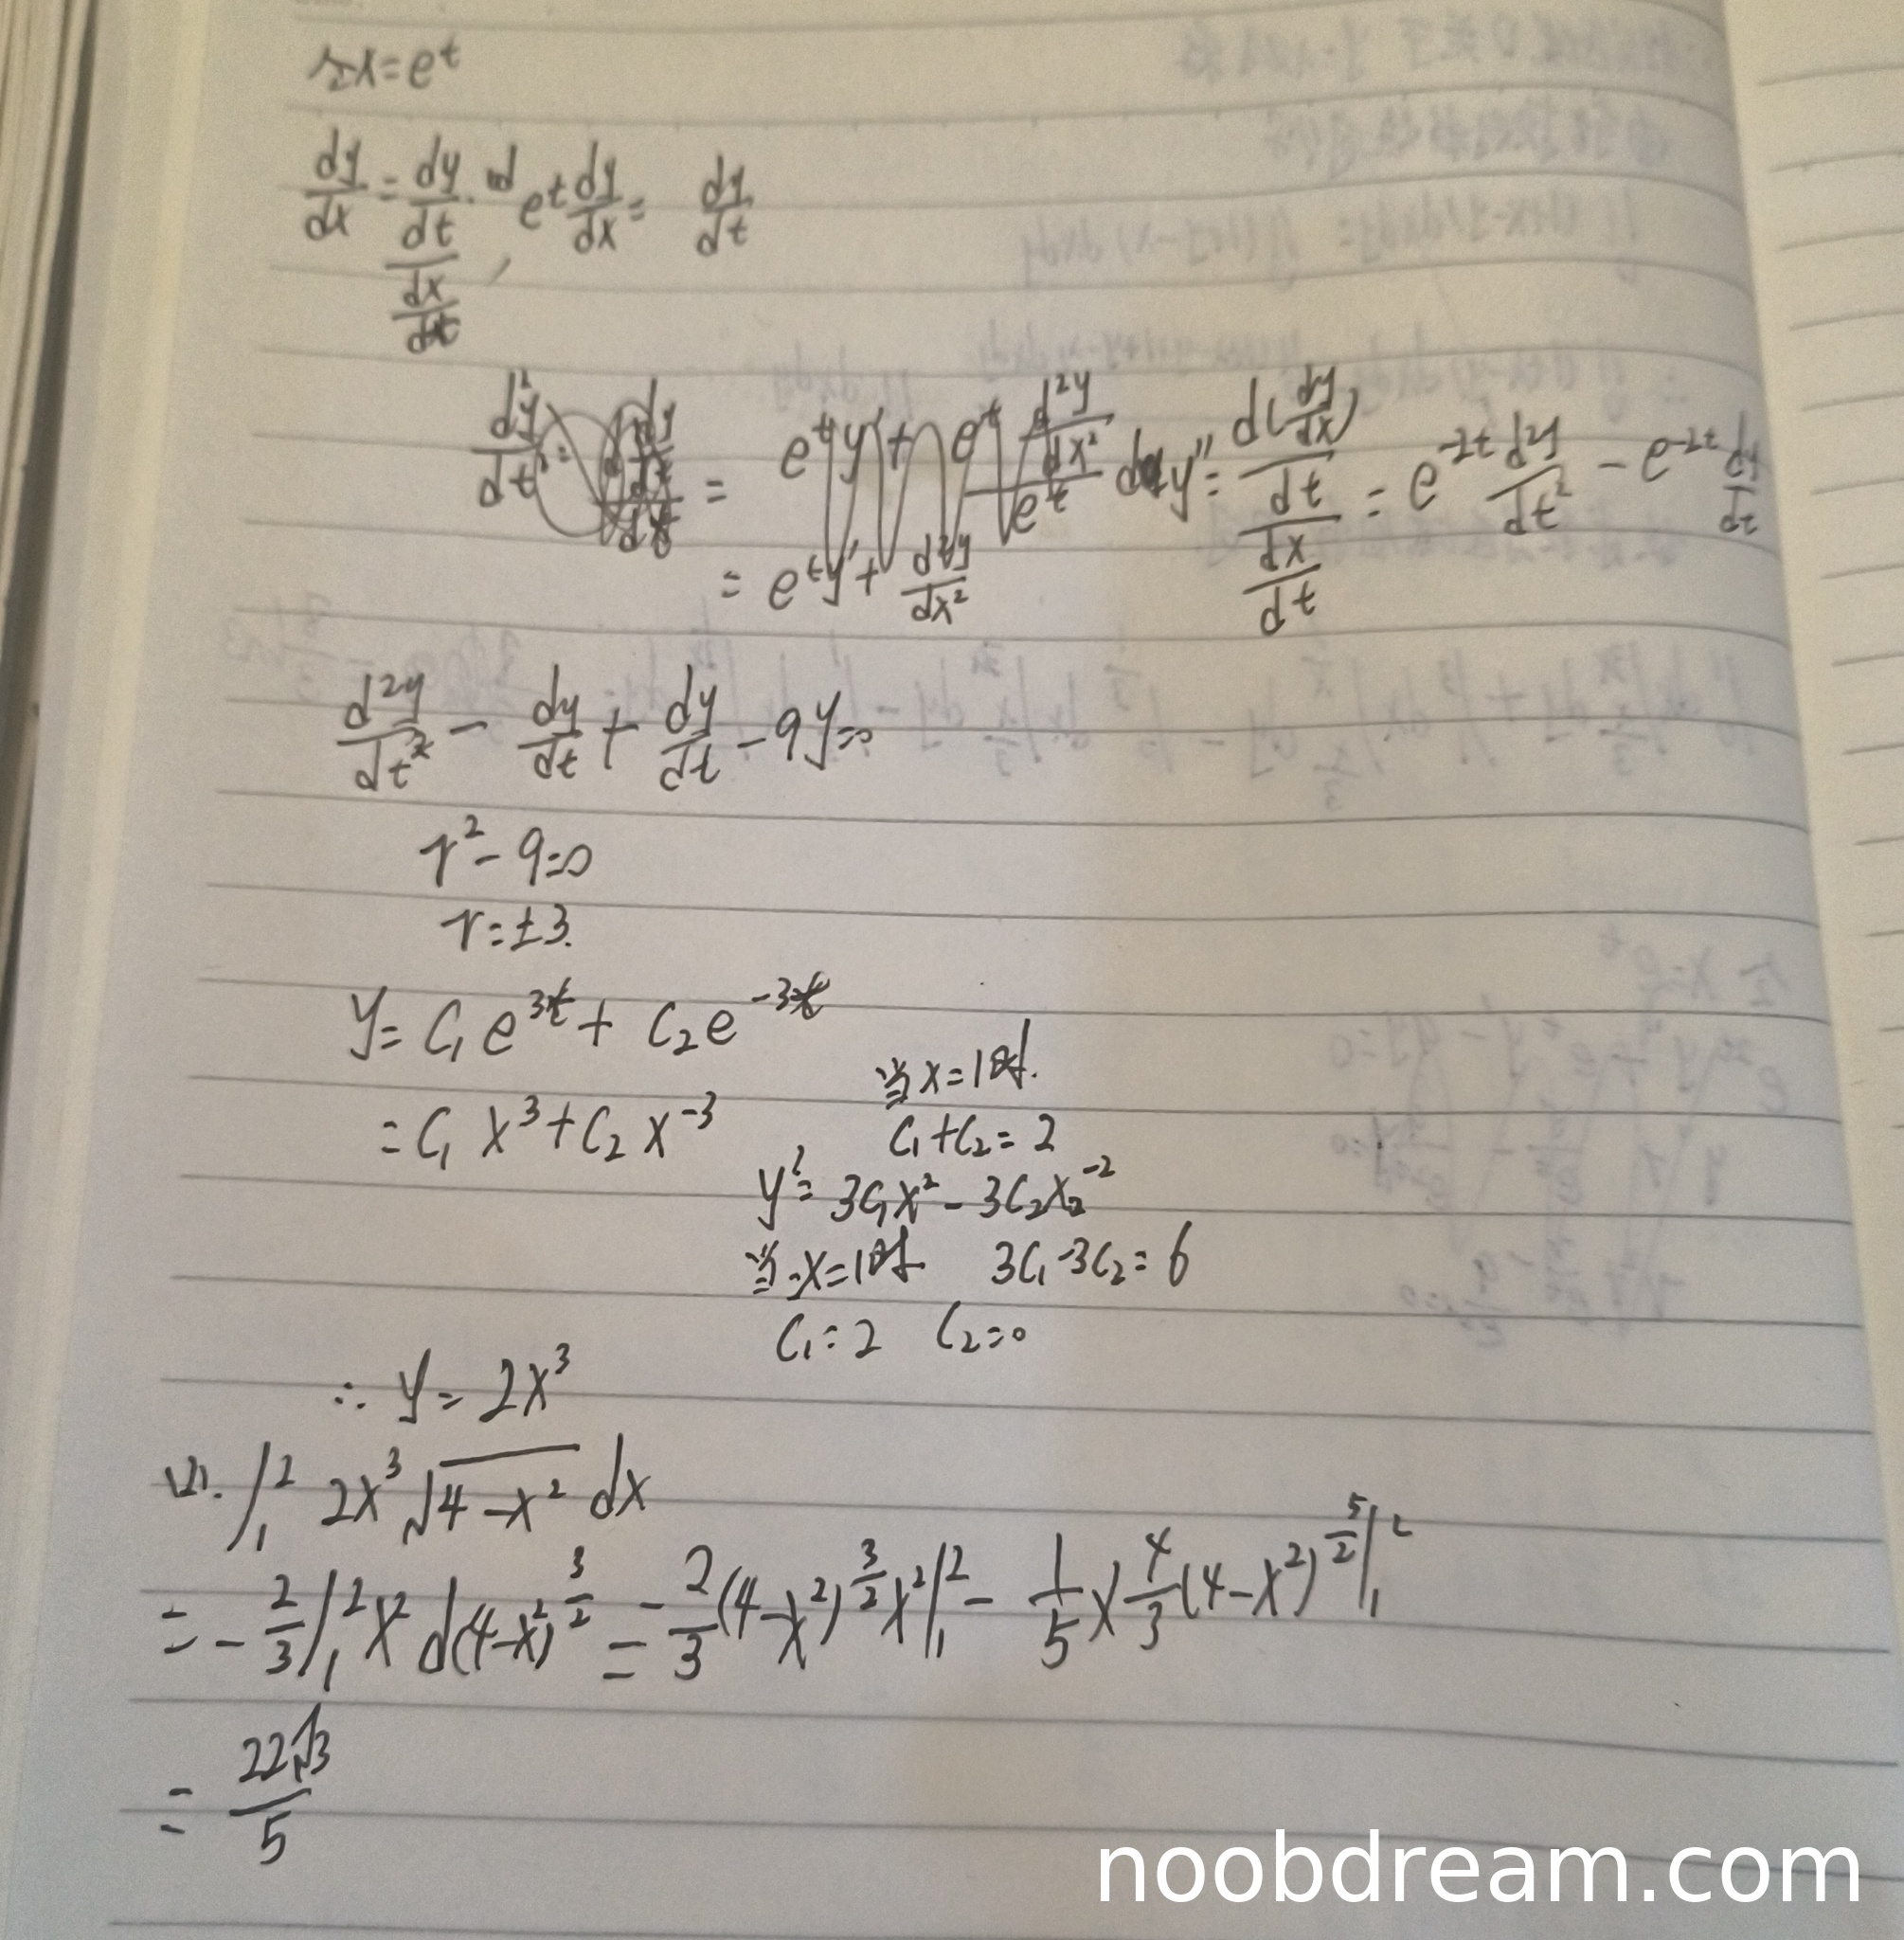 令x=e^t
dy/dx = (dy/dt)/(dx/dt), e^t dy/dx = dy/dt
d²y/dt² = = e^t y' + e^t (d²y/dx²)/e^t y'' = (d(dy/dx)/dt)/(dx/dt) = e^{-2t} d²y/dt² - e^{-2t} dy/dt
= e^t y' + d²y/dx²
d²y/dt² - dy/dt + dy/dt - 9y=0
r²-9=0
r=±3.
y= C₁e^{3t} + C₂e^{-3t}
当x=1时.
=C₁ x³+C₂ x^{-3}
C₁+C₂=2
y'= 3C₁x² - 3C₂x^{-2}
当x=1时 3C₁-3C₂=6
C₁=2 C₂=0
∴ y= 2x³
(2). ∫₁² 2x³√(4-x²) dx
= -2/3 ∫₁² x² d(4-x²)^{3/2} = -2/3 (4-x²)^{3/2} x² |₁² - 1/5 × 4/3 (4-x²)^{5/2} |₁²
= 22√3/5
noobdream.com